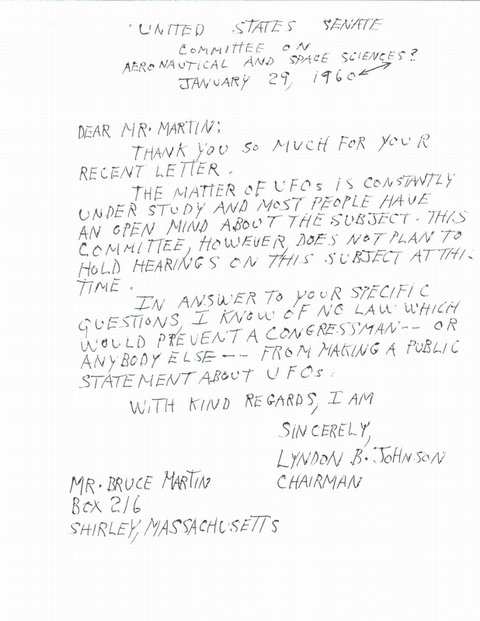 UNITED STATES SENATE
COMMITTEE ON
AERONAUTICAL AND SPACE SCIENCES?
JANUARY 29, 1960
DEAR MR. MARTIN:
THANK YOU SO MUCH FOR YOUR
RECENT LETTER.
THE MATTER OF UFOS IS CONSTANTLY
UNDER STUDY AND MOST PEOPLE HAVE
AN OPEN MIND ABOUT THE SUBJECT. THIS
COMMITTEE, HOWEVER, DOES NOT PLAN TO
HOLD HEARINGS ON THIS SUBJECT AT THI
TIME.
IN ANSWER TO YOUR SPECIFIC
QUESTIONS, I KNOW OF NO LAW WHICH
WOULD PREVENT A CONGRESSMAN-- OR
ANYBODY ELSE -- FROM MAKING A PUBLIC
STATEMENT ABOUT UFOS.
WITH KIND REGARDS, I AM
SINCERELY,
LYNDON B. JOHNSON
CHAIRMAN
MR. BRUCE MARTIN
BOX 216
SHIRLEY, MASSACHUSETTS